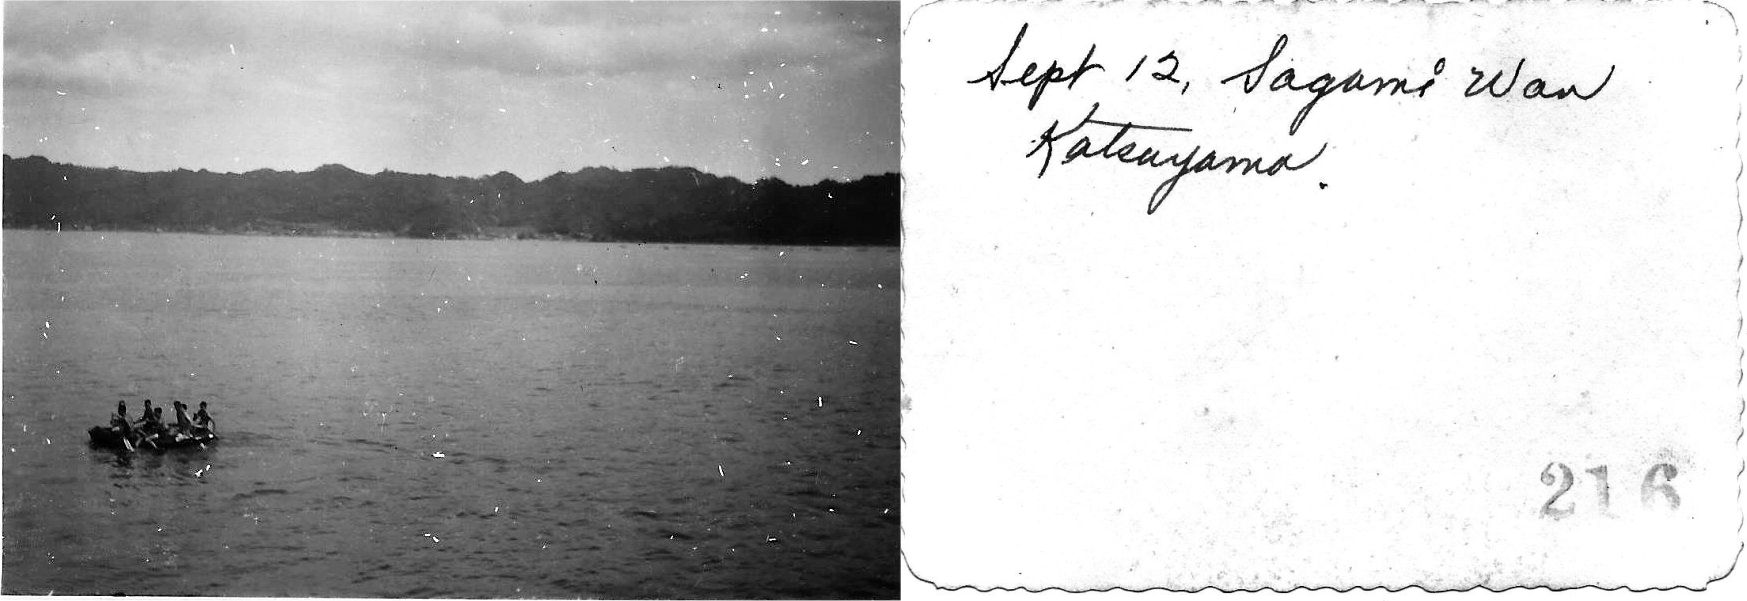 Sept 12, Sagami Wan
Katsuyama.
216